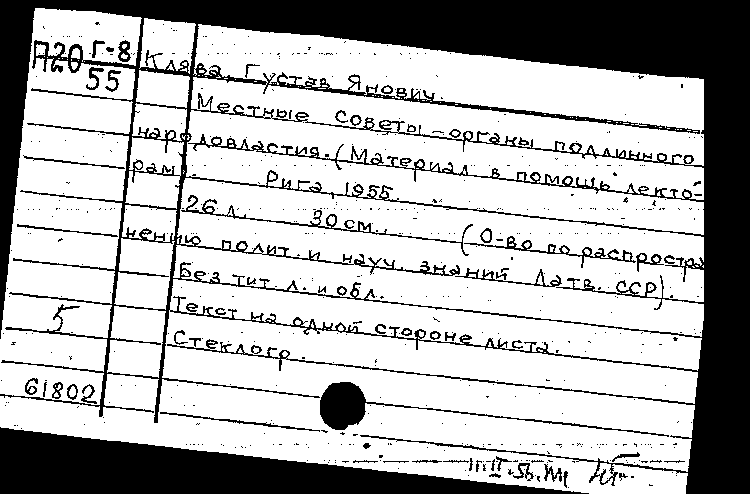 П20 Г-8
55
Клява, Густав Янович.
Местные советы - органы подлинного
народовластия. (Материал в помощь лекто-
рам). Рига, 1955.
26 л. 30 см. (О-во по распростра
нению полит. и науч. знаний Латв. ССР).
Без тит. л. и обл.
Текст на одной стороне листа.
5
Стеклогр.
61802